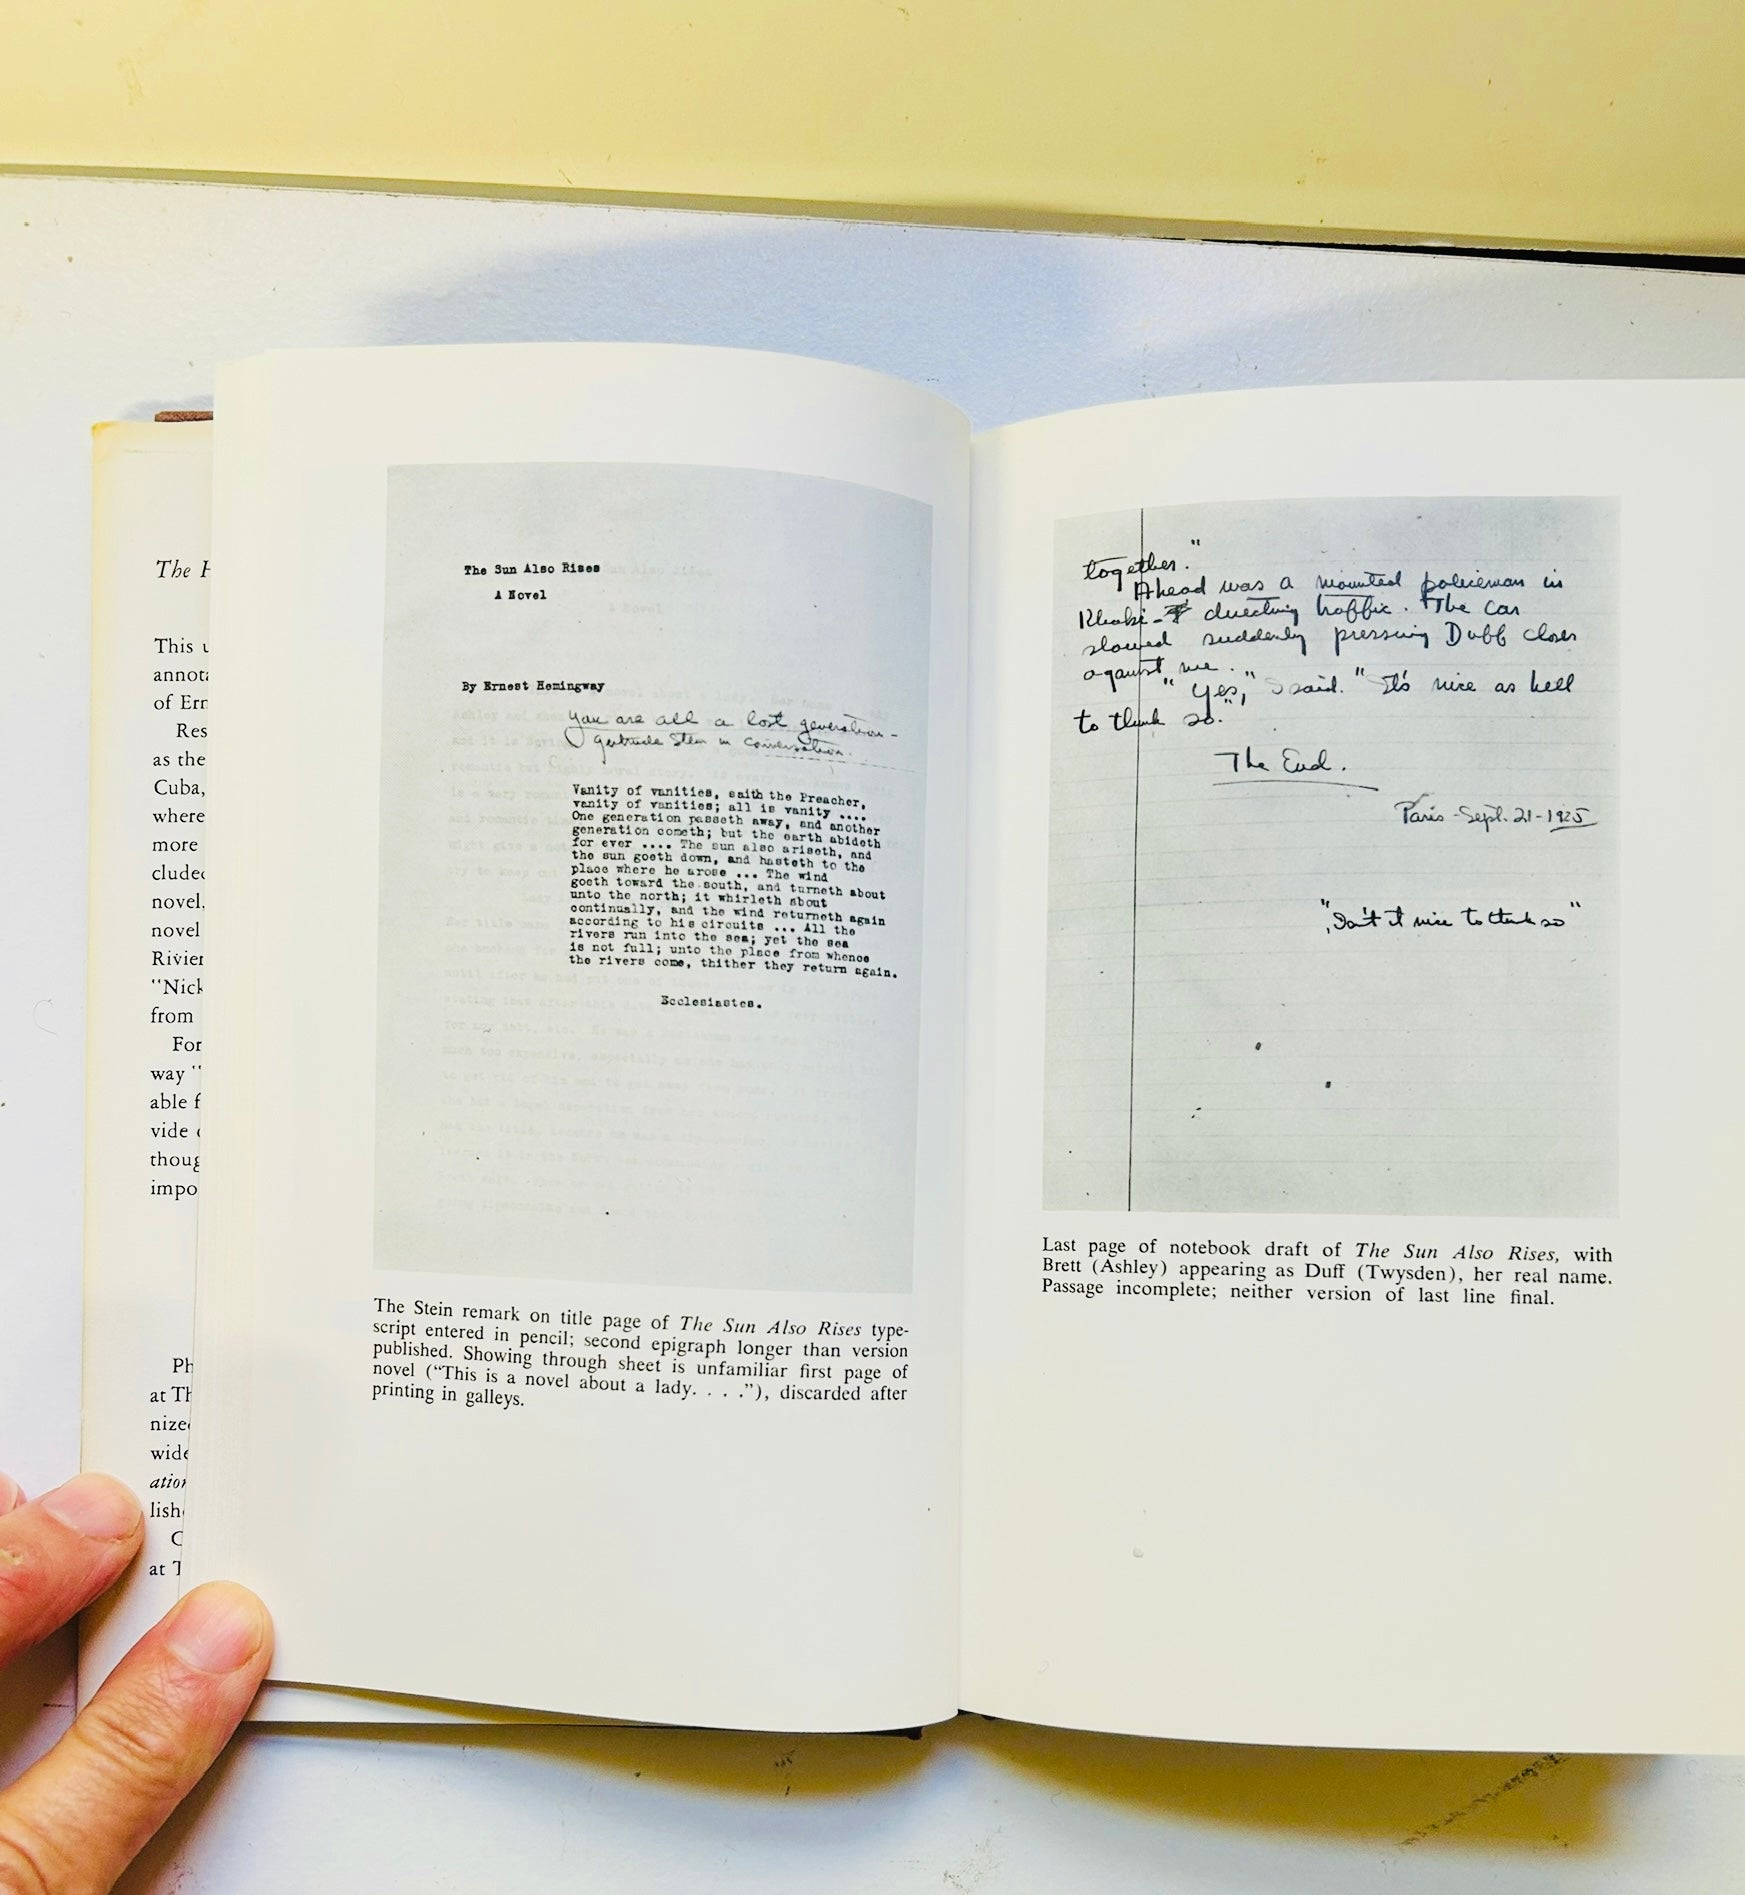 The
This
annota
of Ern
Res
as the
Cuba,
where
more
cluded
novel,
novel
Rivier
"Nick
from
For
way "
able f
vide
thoug
impo
Ph
at Th
nize
wide
ation
lishe
C
at T
The Sun Also Rises
A Novel
By Ernest Hemingway
You are all a lost generation -
Gertrude Stein in conversation.
Vanity of vanities, saith the Preacher,
vanity of vanities; all is vanity ....
One generation passeth away, and another
generation cometh; but the earth abideth
for ever .... The sun also ariseth, and
the sun goeth down, and hasteth to the
place where he arose ... The wind
goeth toward the south, and turneth about
unto the north; it whirleth about
continually, and the wind returneth again
according to his circuits ... All the
rivers run into the sea; yet the sea
is not full; unto the place from whence
the rivers come, thither they return again.
Ecclesiastes.
The Stein remark on title page of The Sun Also Rises type-
script entered in pencil; second epigraph longer than version
published. Showing through sheet is unfamiliar first page of
novel ("This is a novel about a lady. . . ."), discarded after
printing in galleys.
together."
Ahead was a mounted policeman in
Khaki - directing traffic. The car
slowed suddenly pressing Duff closer
against me.
"Yes," I said. "It's nice as hell
to think so."
The End.
Paris - Sept. 21 - 1925
"Isn't it nice to think so"
Last page of notebook draft of The Sun Also Rises, with
Brett (Ashley) appearing as Duff (Twysden), her real name.
Passage incomplete; neither version of last line final.